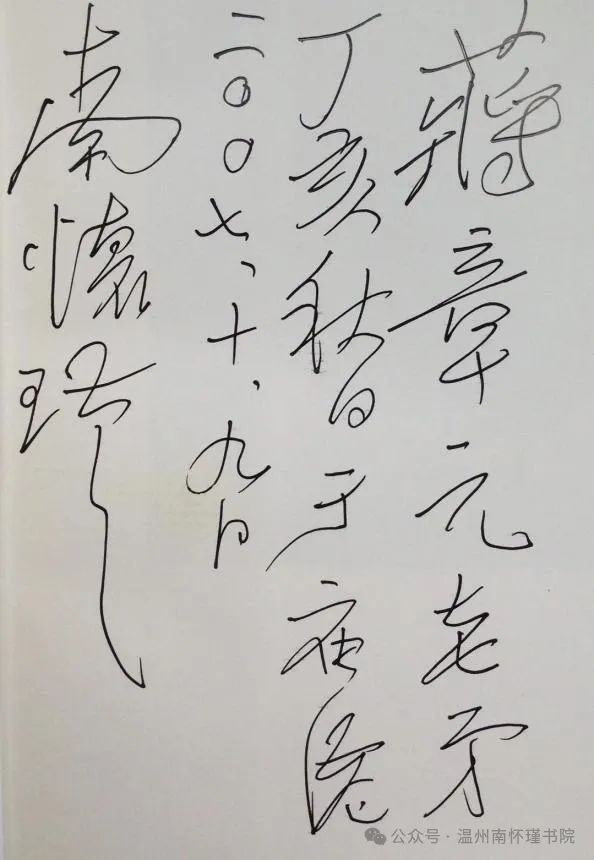 蔣章元老弟
丁亥秋日于庙港
二〇〇七、十、九日
南懷瑾
公众号 · 温州南怀瑾书院